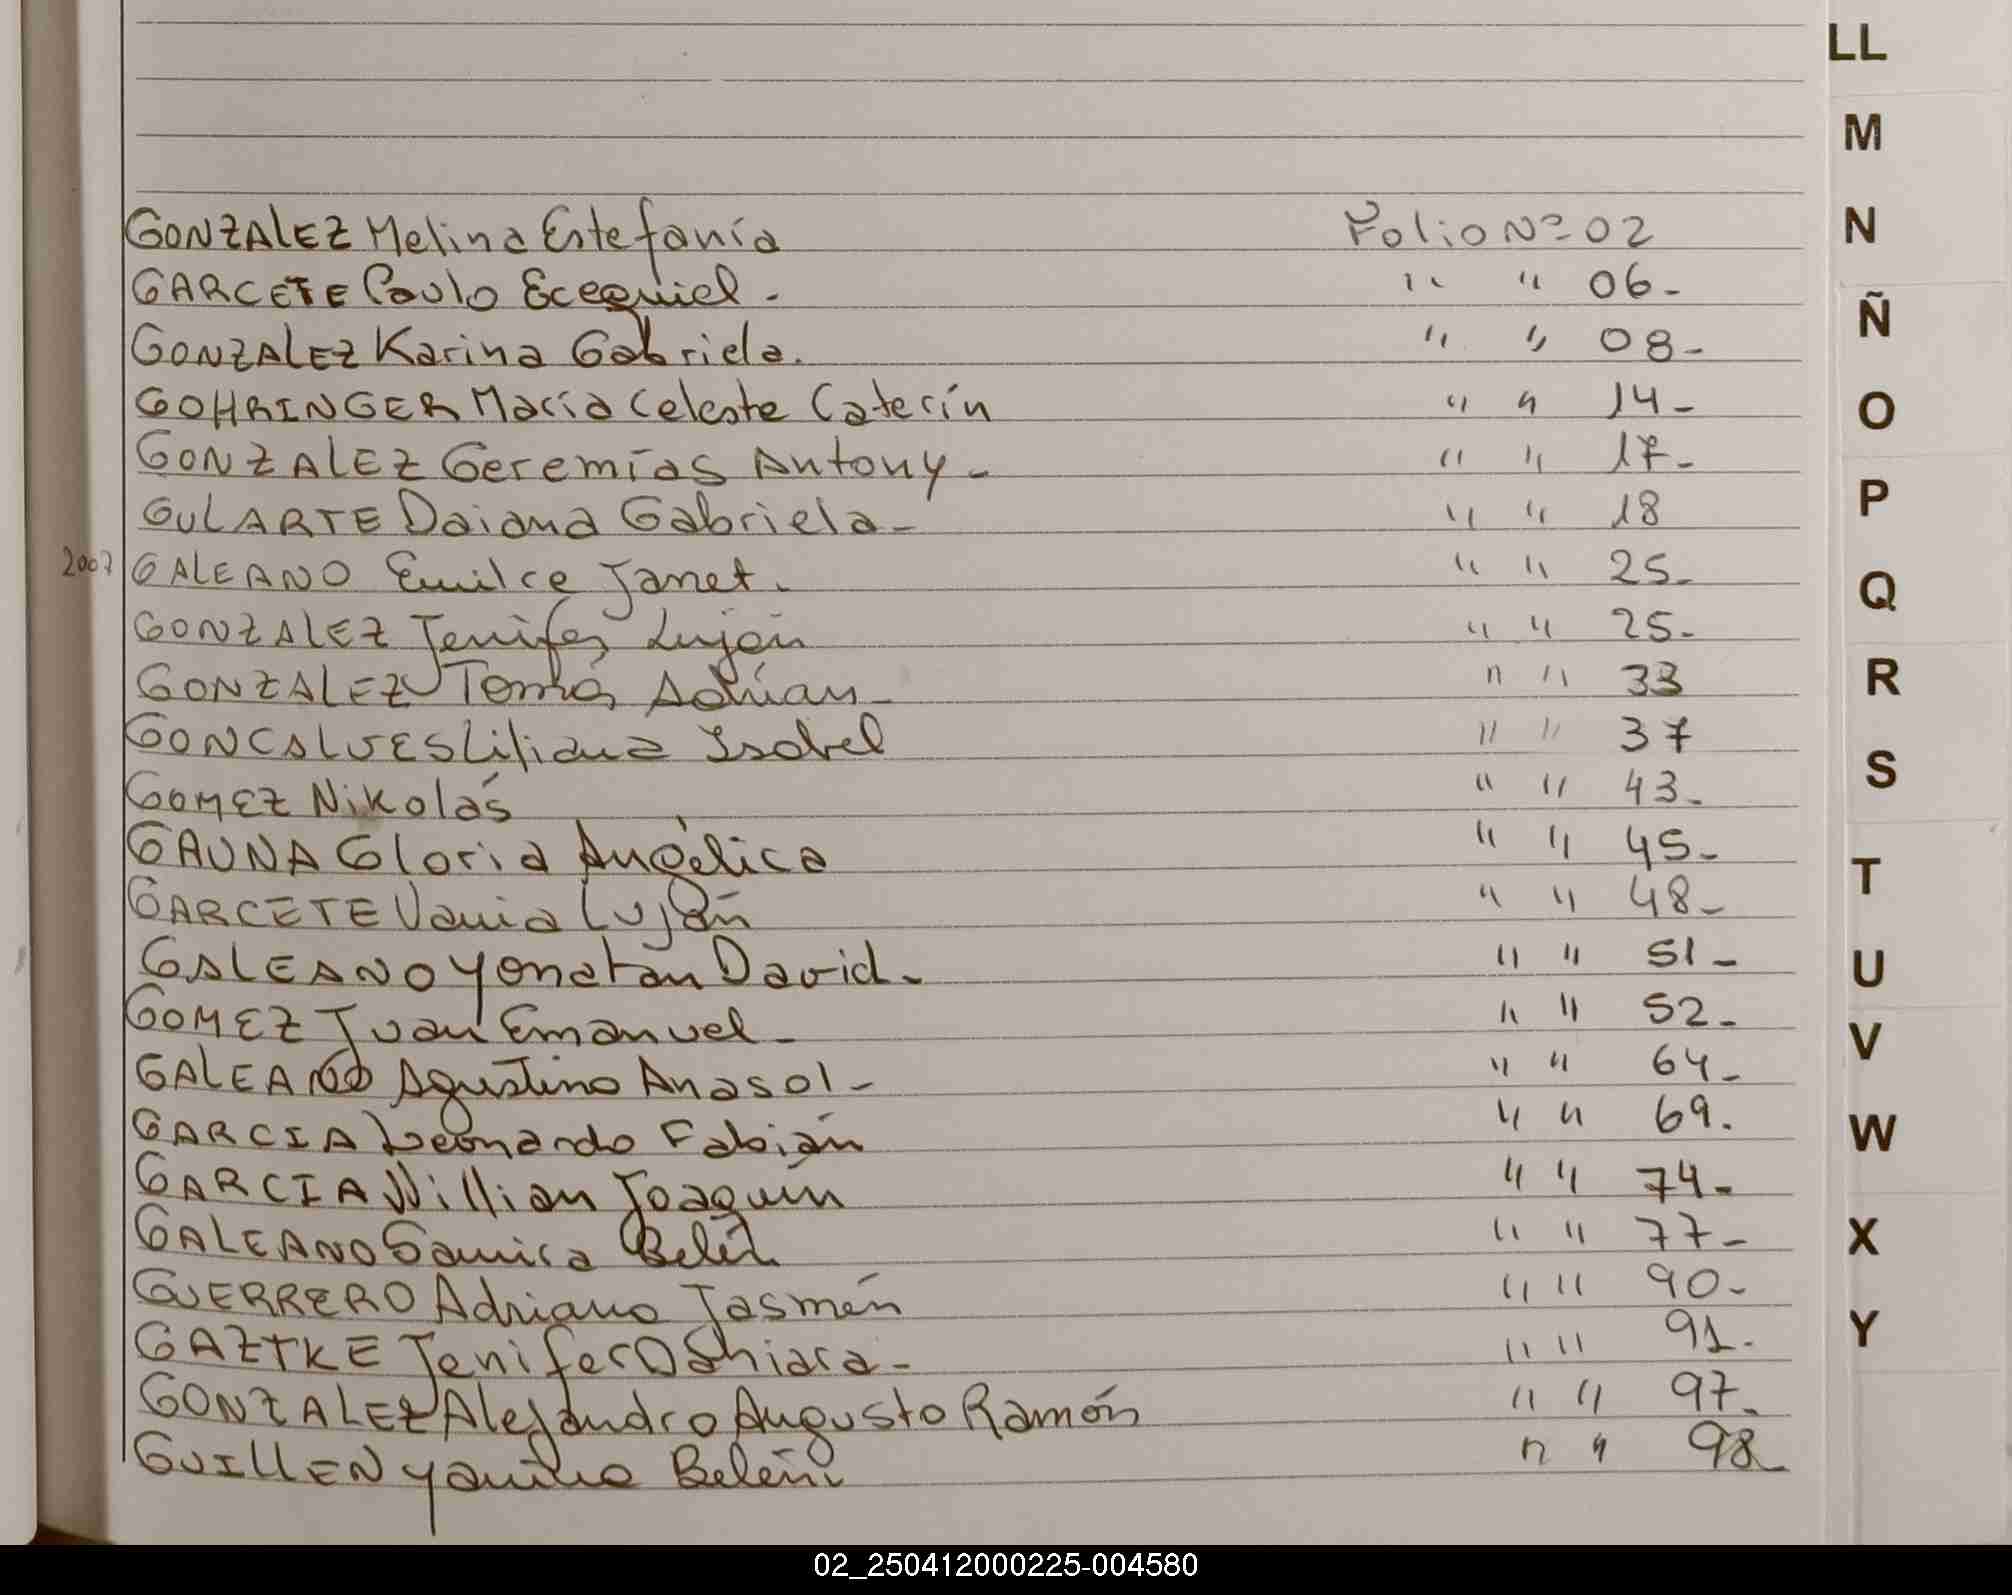 LL
M
N
Ñ
O
P
Q
R
S
T
U
V
W
X
Y
GONZALEZ Melina Estefanía Folio Nº 02
GARCETE Paulo Ecequiel - " " 06-
GONZALEZ Karina Gabriela. " " 08-
GOHRINGER María Celeste Caterín " " 14-
GONZALEZ Geremías Antony - " " 17-
GULARTE Daiana Gabriela - " " 18
2007 GALEANO Emilce Janet. " " 25-
GONZALEZ Jenifer Luján " " 25-
GONZALEZ Tomás Adrian - " " 33
GONCALVES Liliana Isabel " " 37
GOMEZ Nikolás " " 43-
GAUNA Gloria Angélica " " 45-
GARCETE Vania Luján " " 48-
GALEANO Yonatan David - " " 51-
GOMEZ Juan Emanuel - " " 52-
GALEANO Agustina Anasol - " " 64-
GARCIA Leonardo Fabián " " 69.
GARCIA Willian Joaquín " " 74-
GALEANO Samira Belén " " 77-
GUERRERO Adriana Jasmén " " 90-
GAZTKE Jenifer Dahiara - " " 91-
GONZALEZ Alejandro Augusto Ramón " " 97-
GUILLEN Yanina Belén " " 98-
02_250412000225-004580